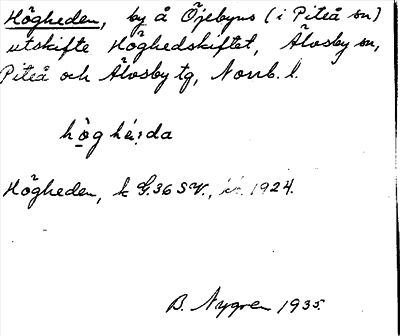 Högheden, by å Öjebyns (i Piteå sn)
utskifte Höghedskiftet, Älvsby sn,
Piteå och Älvsby tg, Norrb. l.
Högheden, k G.36 SV., 1924.
B. Nygren 1935.